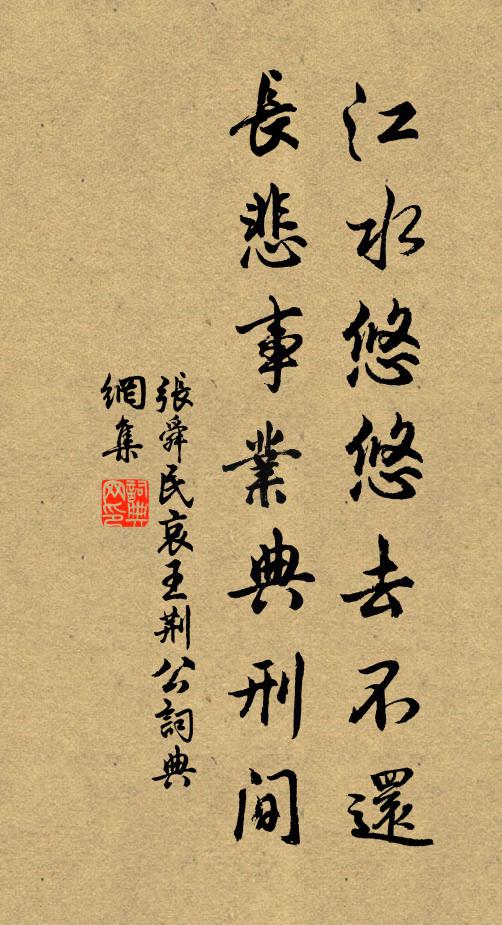 江水悠悠去不還
長悲事業典刑間
張舜民哀王荊公詞典
網集
詞典
网印